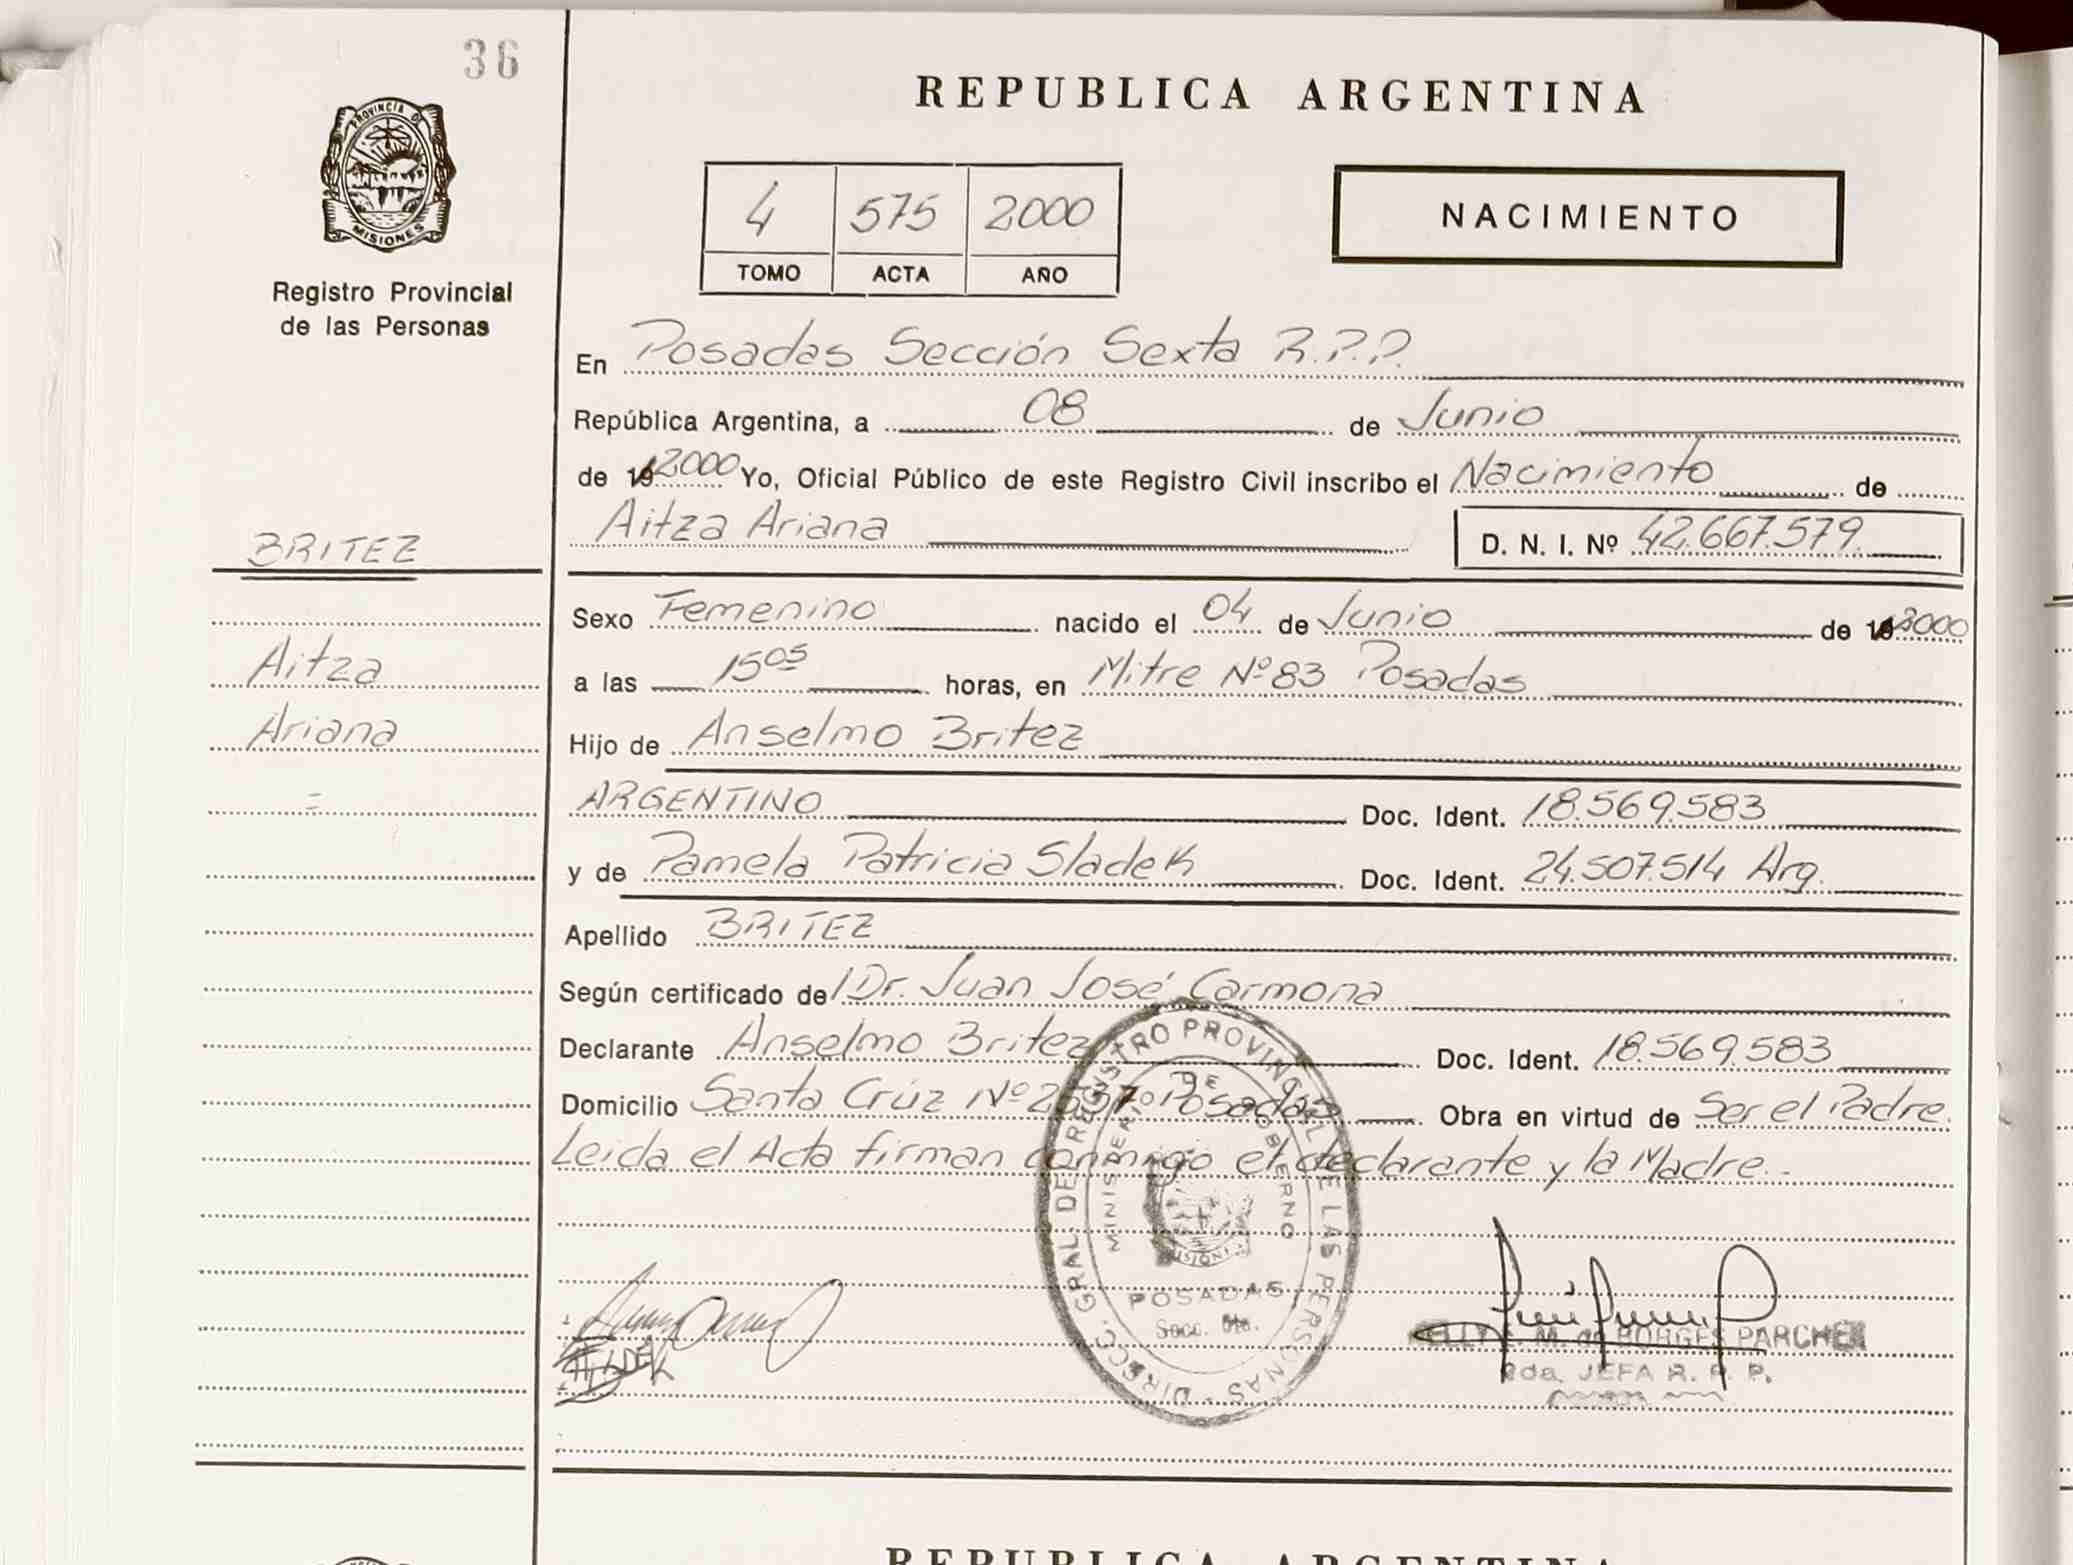 36
PROVINCIA DE
MISIONES
Registro Provincial
de las Personas
REPUBLICA ARGENTINA
4 575 2000
TOMO ACTA AÑO
NACIMIENTO
En Posadas Sección Sexta R.P.P.
República Argentina, a 08 de Junio
de 19 2000 Yo, Oficial Público de este Registro Civil inscribo el Nacimiento de
BRITEZ
Aitza Ariana D. N. I. Nº 42.667.579
Sexo Femenino nacido el 04 de Junio de 19 2000
Aitza
a las 15 05 horas, en Mitre Nº 83 Posadas
Ariana
Hijo de Anselmo Britez
=
ARGENTINO Doc. Ident. 18.569.583
y de Pamela Patricia Sladek Doc. Ident. 24.507.514 Arg.
Apellido BRITEZ
Según certificado de Dr. Juan José Carmona
Declarante Anselmo Britez Doc. Ident. 18.569.583
Domicilio Santa Crúz Nº Posadas Obra en virtud de Ser el Padre.
Leida el Acta firman conmigo el declarante y la Madre.
DIRECC. GRAL. DE REGISTRO PROVINCIAL DE LAS PERSONAS
MINISTERIO DE GOBIERNO
MISIONES
POSADAS
Secc. 6ta.
M. de BORGES PARCHEN
2da. JEFA R. P. P.
REPUBLICA ARGENTINA